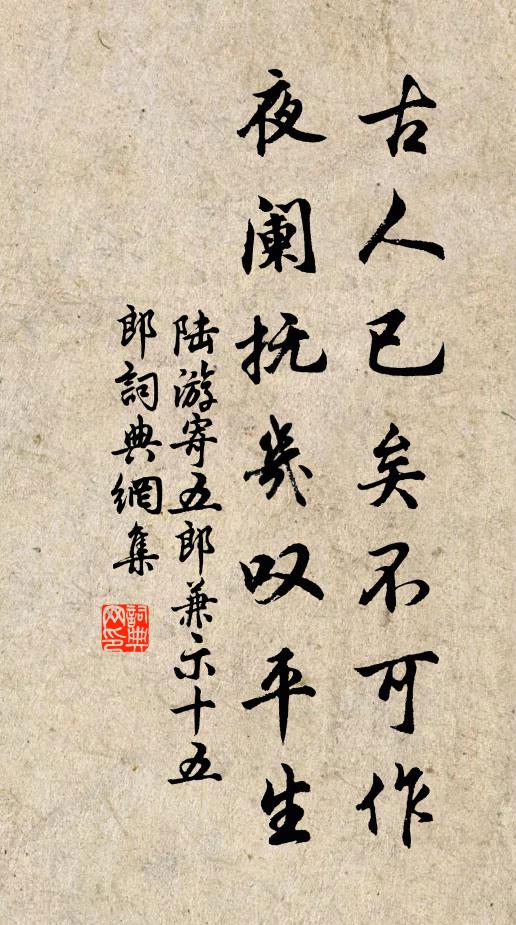 古人已矣不可作
夜阑抚几叹平生
陆游寄五郎兼示十五
郎詞典網集
詞典网印